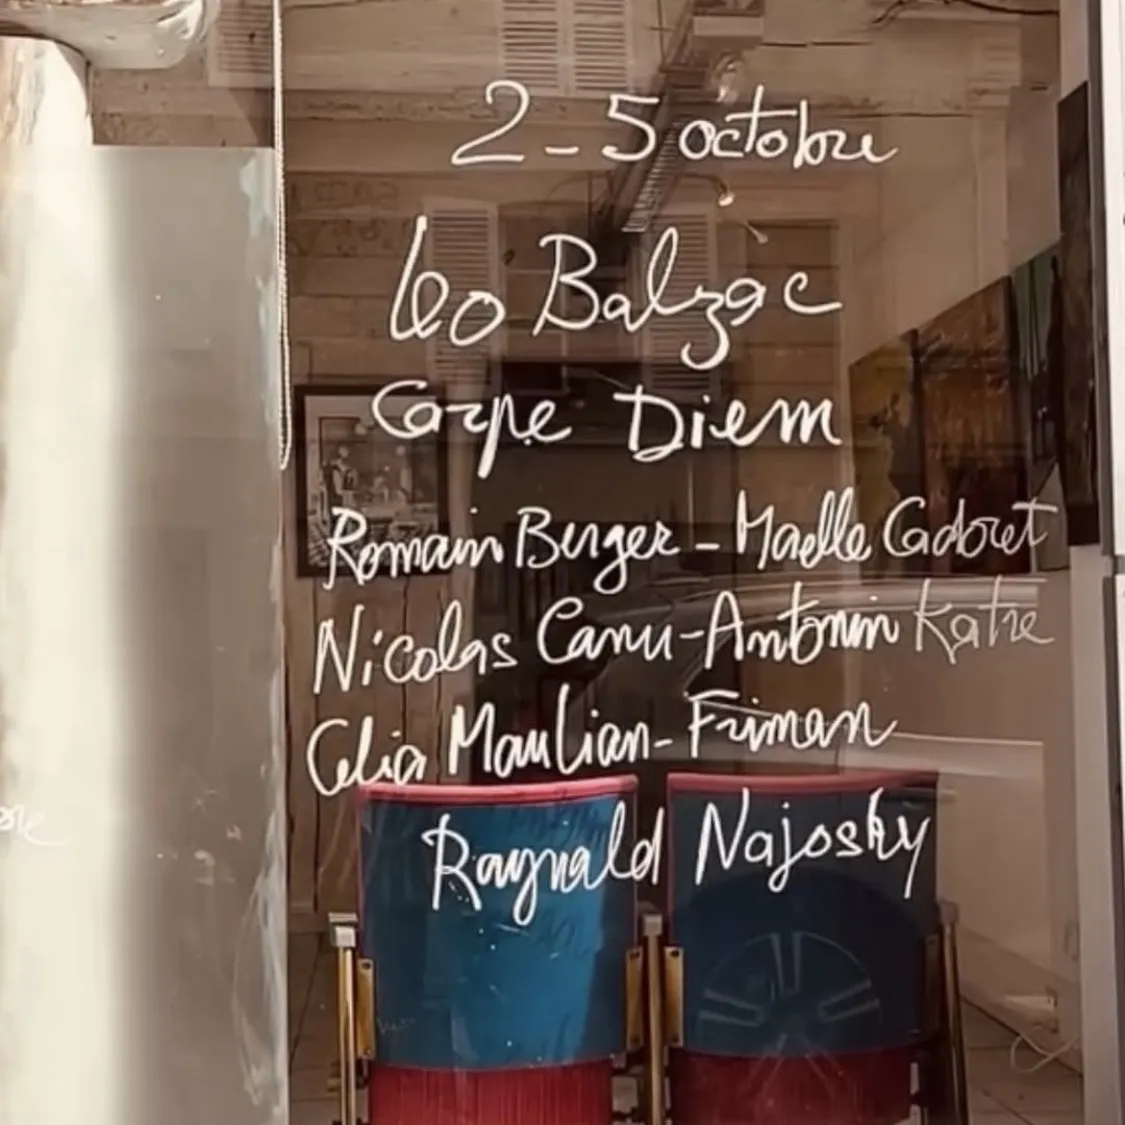 2 - 5 octobre
Leo Balzac
Carpe Diem
Romain Berger - Maelle Cadoret
Nicolas Canu - Antonin Katre
Celia Maulian - Friman
Raynald Najosky